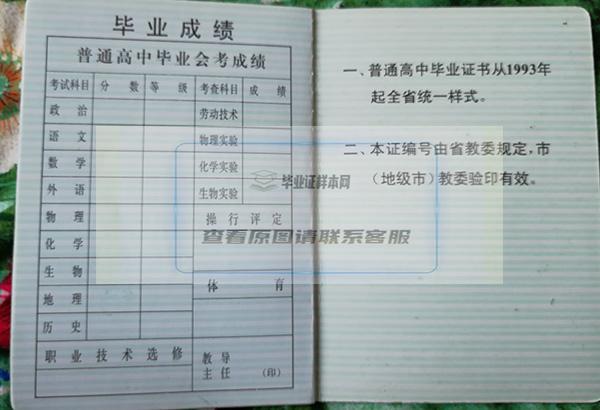 毕业成绩
普通高中毕业会考成绩
考试科目 分数 等级 考查科目 成绩
政治 劳动技术
语文 物理实验
数学 化学实验
外语 生物实验
物理 操行评定
化学
生物
体育
地理
历史
职业技术选修 教导
主任 (印)
一、普通高中毕业证书从1993年
起全省统一样式。
二、本证编号由省教委规定,市
(地级市)教委验印有效。
毕业证样本网
查看原图请联系客服